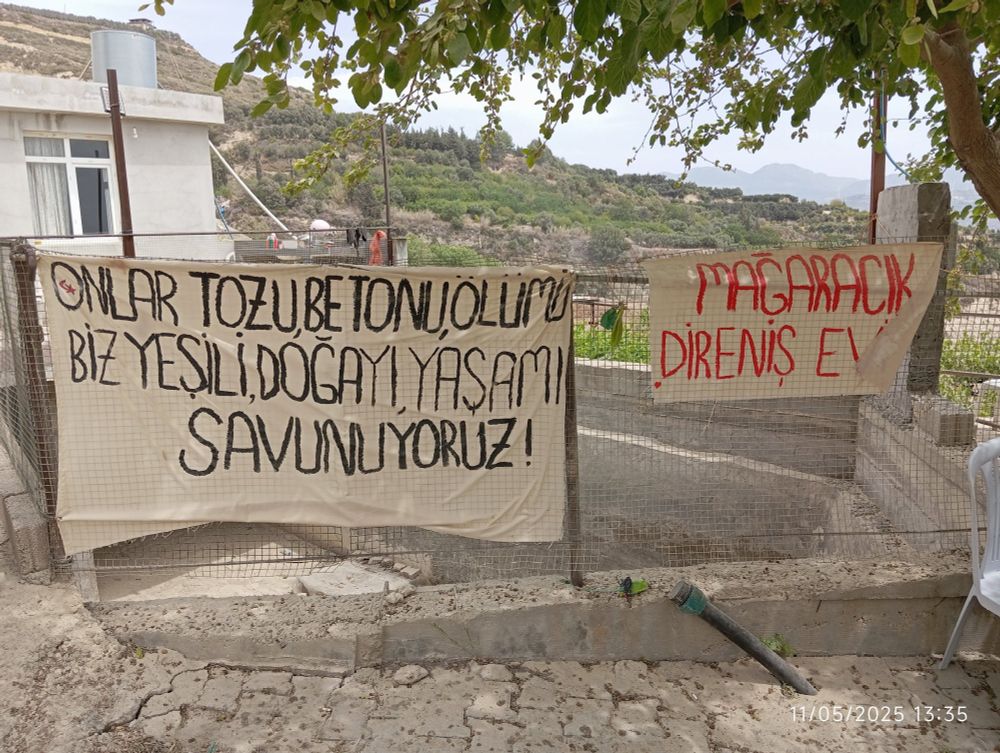 ONLAR TOZU, BETONU, ÖLÜMÜ
BİZ YEŞİLİ, DOĞAYI, YAŞAMI
SAVUNUYORUZ!
MAĞARACIK
DİRENİŞ EVİ
11/05/2025 13:35